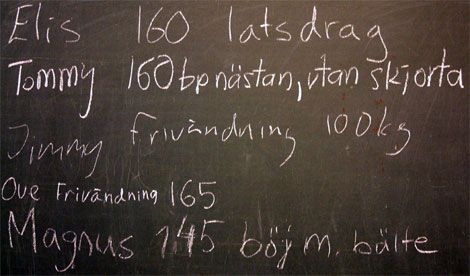 Elis 160 latsdrag
Tommy 160 bp nästan, utan skjorta
Jimmy Frivändning 100kg
Ove Frivändning 165
Magnus 145 böj m. bälte